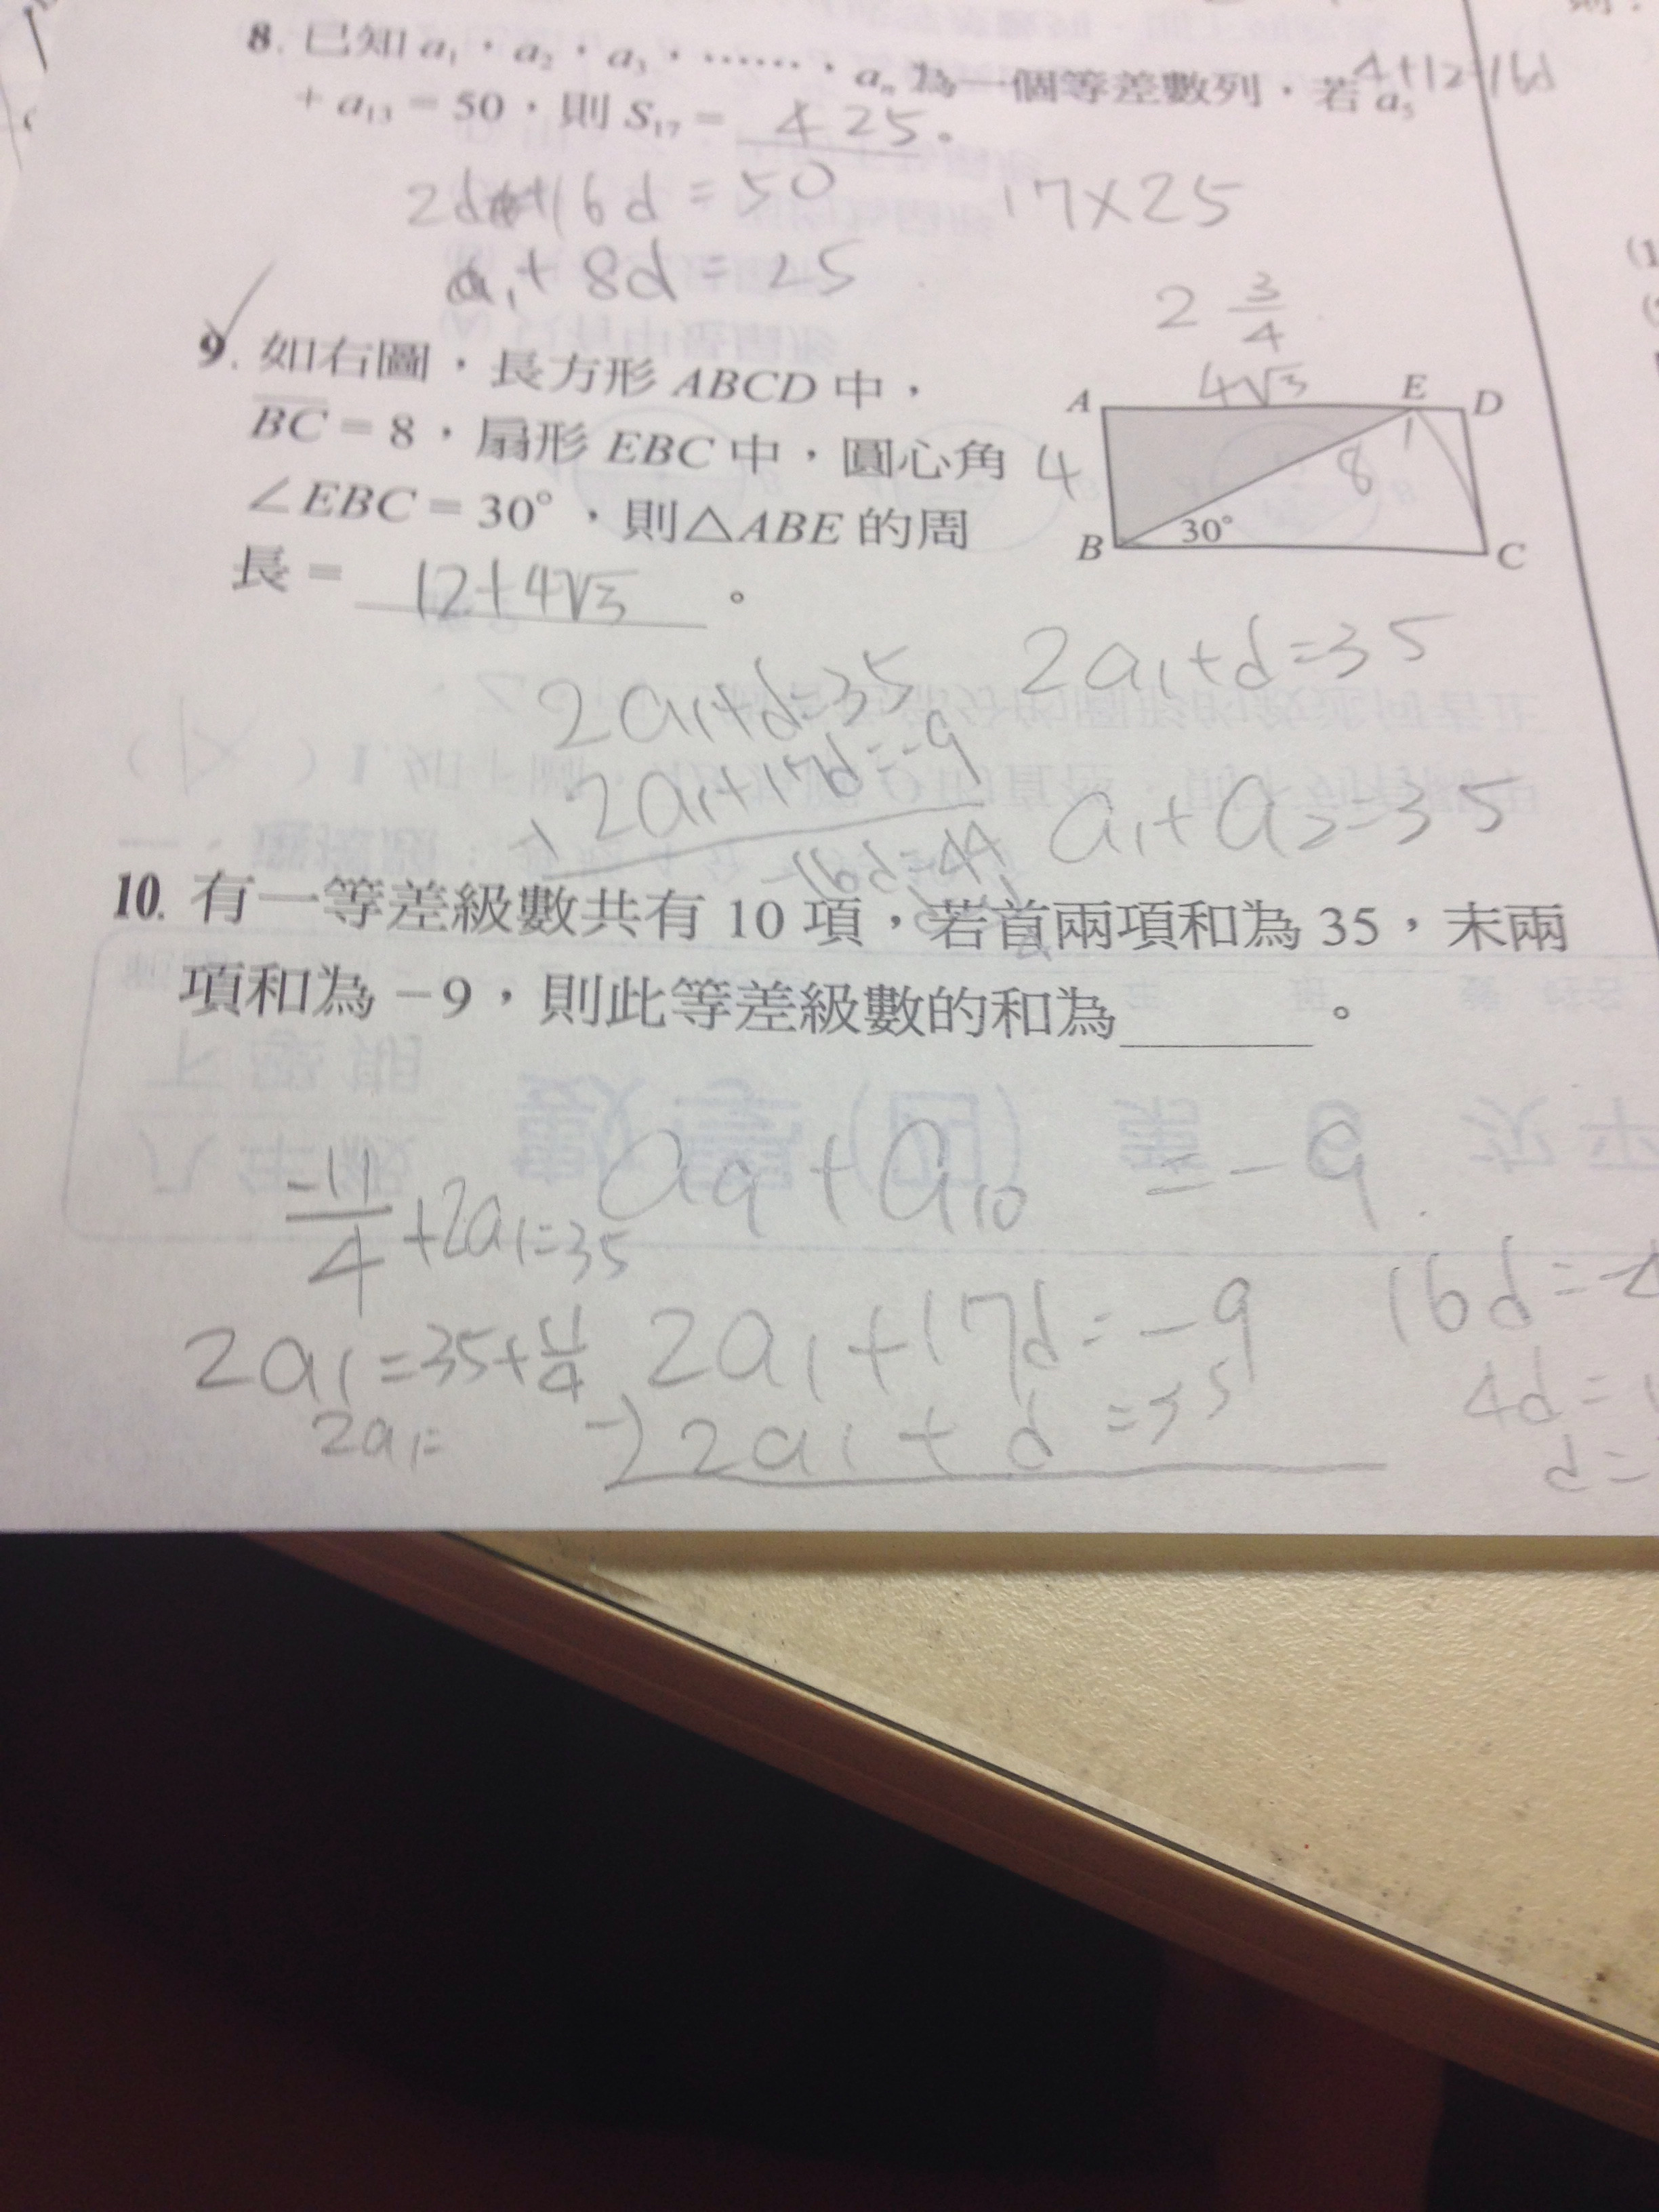 4+12=16d
8. 已知 a₁，a₂，a₃，……，aₙ 為一個等差數列，若 a₅
+ a₁₃ = 50，則 S₁₇ = 425。
+16d = 50
17×25
a₁ + 8d = 25
2 3/4
9. 如右圖，長方形 ABCD 中，
BC = 8，扇形 EBC 中，圓心角
∠EBC = 30°，則△ABE 的周
長 = 12+4√3 。
4√3
A E D
4 8 1
B 30° C
2a₁+d=35
2a₁+d=35
2a₁+17d=-9
-16d=44
a₁+a₂=35
10. 有一等差級數共有 10 項，若首兩項和為 35，末兩
項和為 −9，則此等差級數的和為 。
a₉ + a₁₀ = -9
-11/4 +2a₁=35
16d=-4
2a₁=35+11/4
2a₁+17d=-9
4d=
2a₁=
-) 2a₁ + d = 35
d=